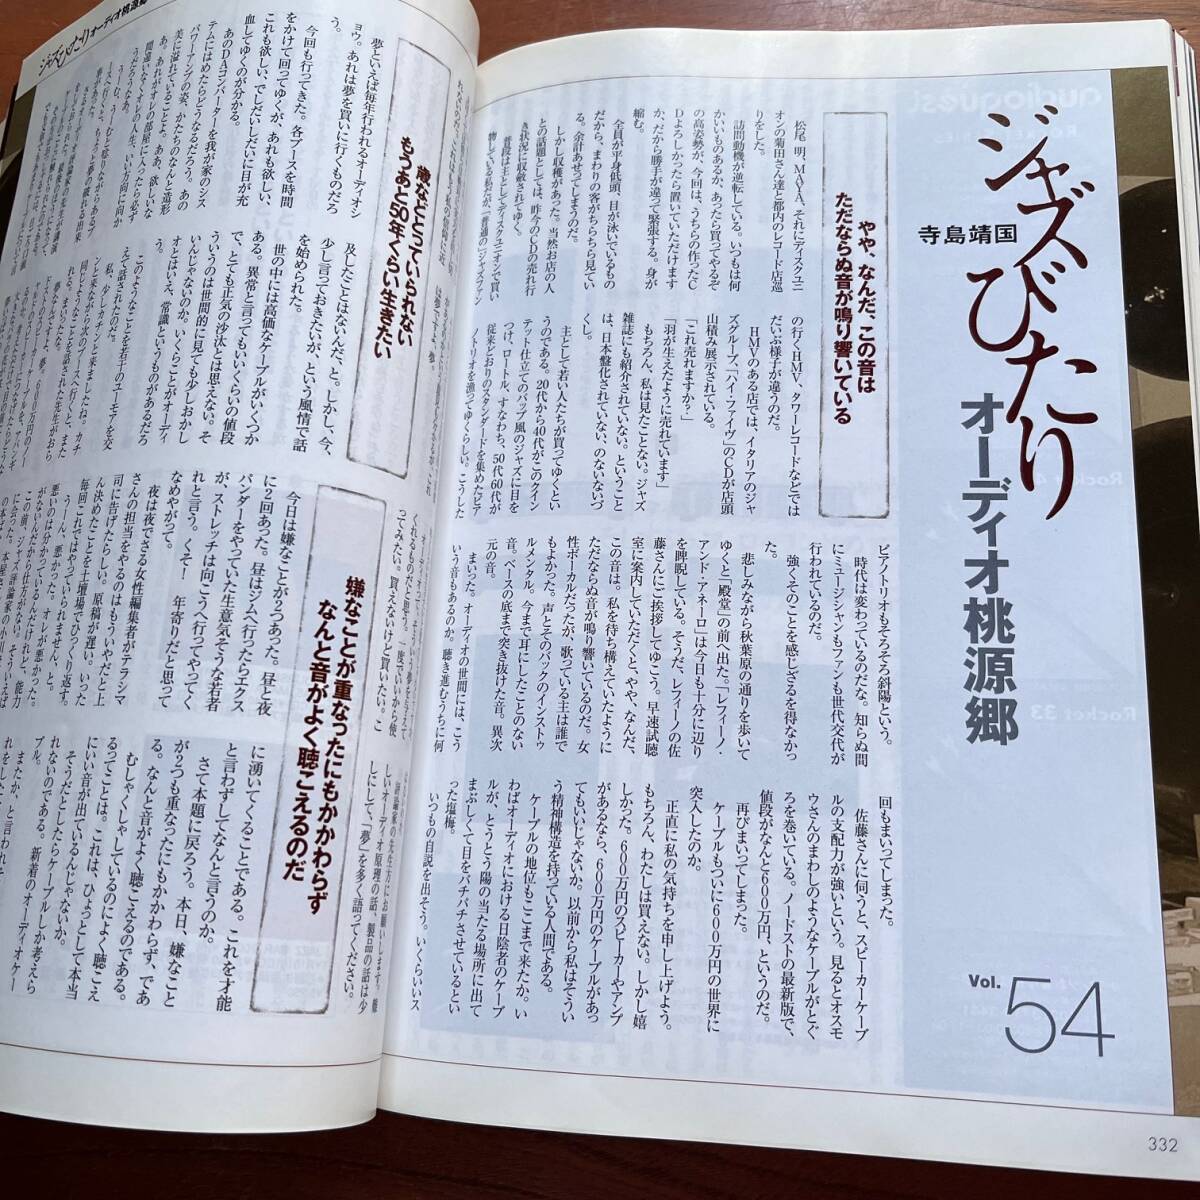 ジャズびたり
オーディオ桃源郷
寺島靖国
Vol. 54
やや、なんだ、この音は
ただならぬ音が鳴り響いている
松尾 明、MAYA、それにディスクユニ
オンの菊田さん達と都内のレコード店巡
りをした。
訪問動機が逆転している。いつもは何
かいいものあるか、あったら買ってやるぞ
の高姿勢が、今回は、うちらの作ったC
Dよろしかったら置いていただけます
か、だから勝手が違って緊張する。身が
縮む。
全員が平身低頭、目が泳いでいるもの
だから、まわりの客がちらちら見てい
る。余計あせってしまうのだ。
しかし収穫があった。当然お店の人
との話題としては、昨今のCDの売れ行
き状況に収斂されてゆく。
普段は主としてディスクユニオンで買い
物している私だが、「普通の」ジャズファン
の行くHMV、タワーレコードなどでは
だいぶ様子が違うのだ。
HMVのある店では、イタリアのジャ
ズグループ、「ハイ・ファイヴ」のCDが店頭
山積み展示されている。
「これ売れますか?」
「羽が生えたように売れています」
もちろん、私は見たことない。ジャズ
雑誌にも紹介されていない。ということ
は、日本盤化されていない、のないないづ
くし。
主として若い人たちが買ってゆくとい
うのである。20代から40代がこのクイン
テット仕立てのバップ風のジャズに目を
つけ、ロートル、すなわち、50代60代が
従来どおりのスタンダードを集めたピア
ノトリオを漁ってゆくらしい。こうした
ピアノトリオもそろそろ斜陽という。
時代は変わっているのだな。知らぬ間
にミュージシャンもファンも世代交代が
行われているのだ。
強くそのことを感じざるを得なかっ
た。
悲しみながら秋葉原の通りを歩いて
ゆくと「殿堂」の前へ出た。「レフィーノ・
アンド・アネーロ」は今日も十分に辺り
を睥睨している。そうだ、レフィーノの佐
藤さんにご挨拶してゆこう。早速試聴
室に案内していただくと、やや、なんだ、
この音は。私を待ち構えていたように
ただならぬ音が鳴り響いているのだ。女
性ボーカルだったが、歌っている主は誰で
もよかった。声とそのバックのインストゥ
ルメンタル。今まで耳にしたことのない
音。ベースの底まで突き抜けた音。異次
元の音。
まいった。オーディオの世間には、こう
いう音もあるのか。聴き進むうちに何
回もまいってしまった。
佐藤さんに伺うと、スピーカーケーブ
ルの支配力が強いという。見るとオスモ
ウさんのまわしのようなケーブルがとぐ
ろを巻いている。ノードストの最新版で、
値段がなんと600万円、というのだ。
再びまいってしまった。
ケーブルもついに600万円の世界に
突入したのか。
正直に私の気持ちを申し上げよう。
もちろん、わたしは買えない。しかし嬉
しかった。600万円のスピーカーやアンプ
があるなら、600万円のケーブルがあっ
てもいいじゃないか。以前から私はそうい
う精神構造を持っている人間である。
ケーブルの地位もここまで来たか。い
わばオーディオにおける日陰者のケーブ
ルが、とうとう陽の当たる場所に出て
まぶしくて目をパチパチさせているとい
った塩梅。
いつもの自説を出そう。いくらいいス
332
ジャズびたりオーディオ桃源郷
歳などとっていられない
もうあと50年くらい生きたい
夢といえば毎年行われるオーディオシ
ョウ。あれは夢を買いに行くものだろ
う。
今回も行ってきた。各ブースを時間
をかけて回ってゆくが、あれも欲しい、
これも欲しい、でしだいしだいに目が充
血してゆくのが分かる。
あのDAコンバーターを我が家のシス
テムにはめたらどうなるだろう。あの
パワーアンプの姿、かたちのなんと造形
美に溢れていることよ。ああ、欲しいな
あ。あれがオレの部屋に入ったら必ず
間違いなくオレの人生、いい方向に向か
うだろうなあ。
及したことはないんだ、と。しかし、今、
少し言っておきたいが、という風情で話
を始められた。
世の中には高価なケーブルがいくつか
ある。異常と言ってもいいくらいの値段
で、とても正気の沙汰とは思えない。そ
ういうのは世間的に見ても少しおかし
いんじゃないのか。いくらことがオーディ
オとはいえ、常識というものがあるだろ
う。
このようなことを若干のユーモアを交
えて話されたのだ。
私、少しカチンと来ましたね。カチ
ンと来ながら次のブースへ行くと、また
嫌なことが重なったにもかかわらず
なんと音がよく聴こえるのだ
今日は嫌なことが2つあった。昼と夜
に2回あった。昼はジムへ行ったらエクス
パンダーをやっていた生意気そうな若者
が、ストレッチは向こうへ行ってやってく
れと言う。くそ! 年寄りだと思って
なめやがって。
夜は夜でさる女性編集者がテラシマ
さんの担当をやるのはもういやだと上
司に告げたらしい。原稿が遅い。いった
ん決めたことを土壇場でひっくり返す。
毎回これではやっていられません、と。
うーん、悪かった。オレが悪かった。
悪いのは分かっているんだけれど、能力
がないんだから仕方がない。そういえば
に湧いてくることである。これを才能
と言わずしてなんと言うのか。
さて本題に戻ろう。本日、嫌なこと
が2つも重なったにもかかわらず、であ
る。なんと音がよく聴こえるのである。
むしゃくしゃしているのによく聴こえ
るってことは。これは、ひょっとして本当
にいい音が出ているんじゃないか。
そうだとしたらケーブルしか考えら
れないのである。新着のオーディオケー
ブル。
またか、と言われそ